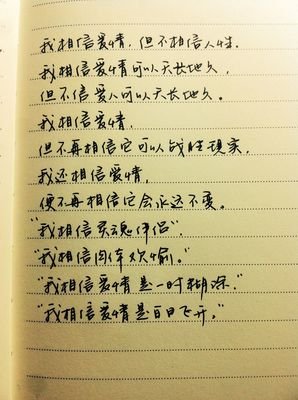 我相信爱情，但不相信人性.
我相信爱情可以天长地久，
但不信爱人可以天长地久。
我相信爱情，
但不再相信它可以战胜现实，
我还相信爱情，
便不再相信它会永远不变。
"我相信灵魂伴侣"，
"我相信肉体欢愉。"
"我相信爱情是一时糊涂."
"我相信爱情是白日飞升。"